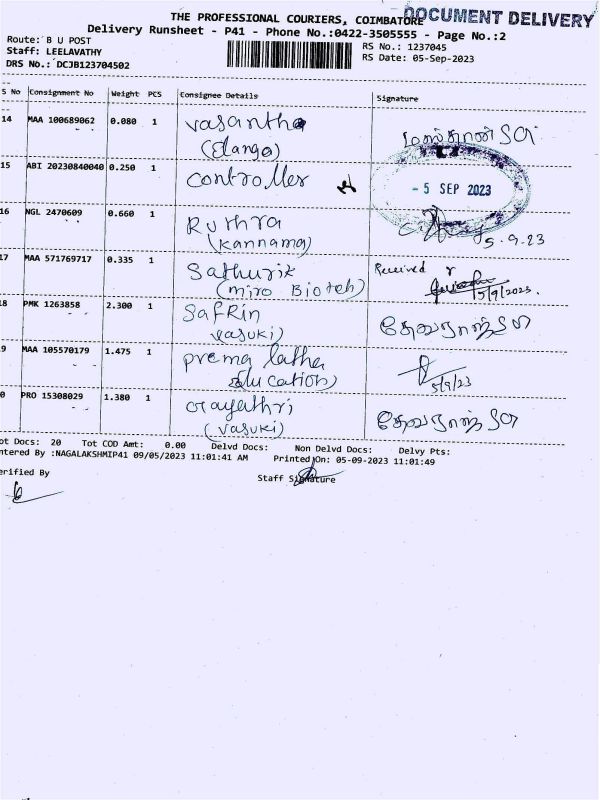 DOCUMENT DELIVERY
THE PROFESSIONAL COURIERS, COIMBATORE
Delivery Runsheet - P41 - Phone No.:0422-3505555 - Page No.:2
Route: B U POST
Staff: LEELAVATHY
DRS No.: DCJB123704502
RS No.: 1237045
RS Date: 05-Sep-2023
S No Consignment No Weight PCS Consignee Details Signature
14 MAA 100689062 0.080 1 Vasantha
(Elango)
15 ABI 20230840040 0.250 1 Controller
- 5 SEP 2023
16 NGL 2470609 0.660 1 Ruthra
(Kannama) 5.9.23
17 MAA 571769717 0.335 1 Sathurik Received
(miro Biotech) 15/9/2023.
8 PMK 1263858 2.300 1 Safrin
Vasuki) தேவராஜ்
9 MAA 105570179 1.475 1 prema latha
Education) 5/9/23
0 PRO 15308029 1.380 1 Gayathri
(Vasuki) தேவராஜ்
ot Docs: 20 Tot COD Amt: 0.00 Delvd Docs: Non Delvd Docs: Delvy Pts:
ntered By :NAGALAKSHMIP41 09/05/2023 11:01:41 AM Printed On: 05-09-2023 11:01:49
erified By
Staff Signature